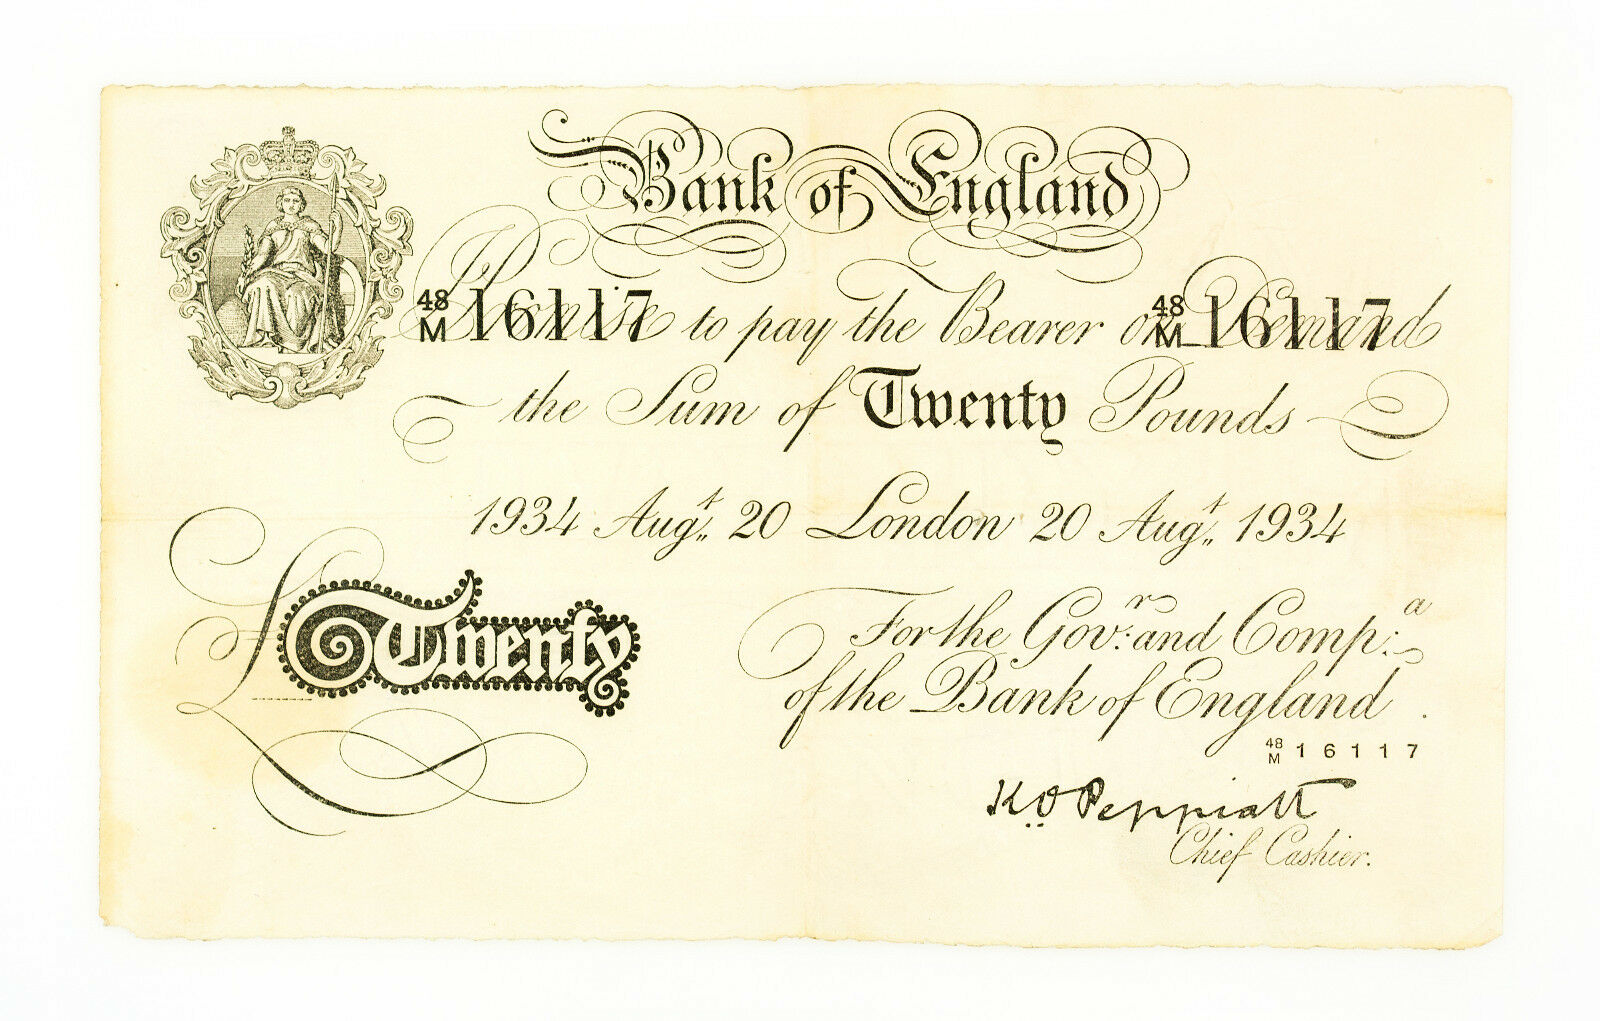 Bank of England
48/M 16117 I Promise to pay the Bearer on Demand 48/M 16117
the Sum of Twenty Pounds
1934 Augt. 20 London 20 Augt. 1934
£ Twenty
For the Govr. and Compa.
of the Bank of England
48/M 16117
K.O. Peppiatt
Chief Cashier.